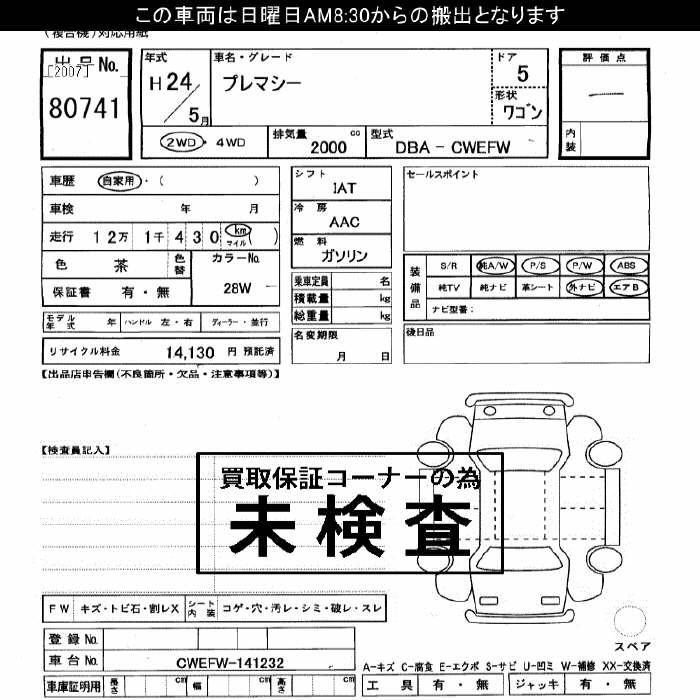 この車両は日曜日AM8:30からの搬出となります
(複合機)対応用紙
出品No.
[2007]
80741
年式
H24/5月
車名・グレード
プレマシー
ドア
5
形状
ワゴン
評価点
―
内装
2WD・4WD
排気量 cc
2000
型式
DBA - CWEFW
車歴 自家用・( )
車検 年 月
走行 12万 1千 430 km マイル ( )
色 茶 色替
カラーNo.
28W
保証書 有・無
シフト
IAT
冷房
AAC
燃料
ガソリン
乗車定員 名
積載量 kg
総重量 kg
セールスポイント
装備品
S/R 純A/W P/S P/W ABS
純TV 純ナビ 革シート 外ナビ エアB
ナビ型番:
モデル年式 年 ハンドル 左・右 ディーラー・並行
リサイクル料金 14,130 円 預託済
名変期限
月 日
後日品
【出品店申告欄(不良箇所・欠品・注意事項等)】
【検査員記入】
買取保証コーナーの為
未検査
FW キズ・トビ石・割レX シート内装 コゲ・穴・汚レ・シミ・破レ・スレ
登録No.
車台No. CWEFW-141232
車庫証明用 長さ cm 幅 cm 高さ cm
スペア
A-キズ C-腐食 E-エクボ S-サビ U-凹ミ W-補修 XX-交換済
工具 有・無 ジャッキ 有・無